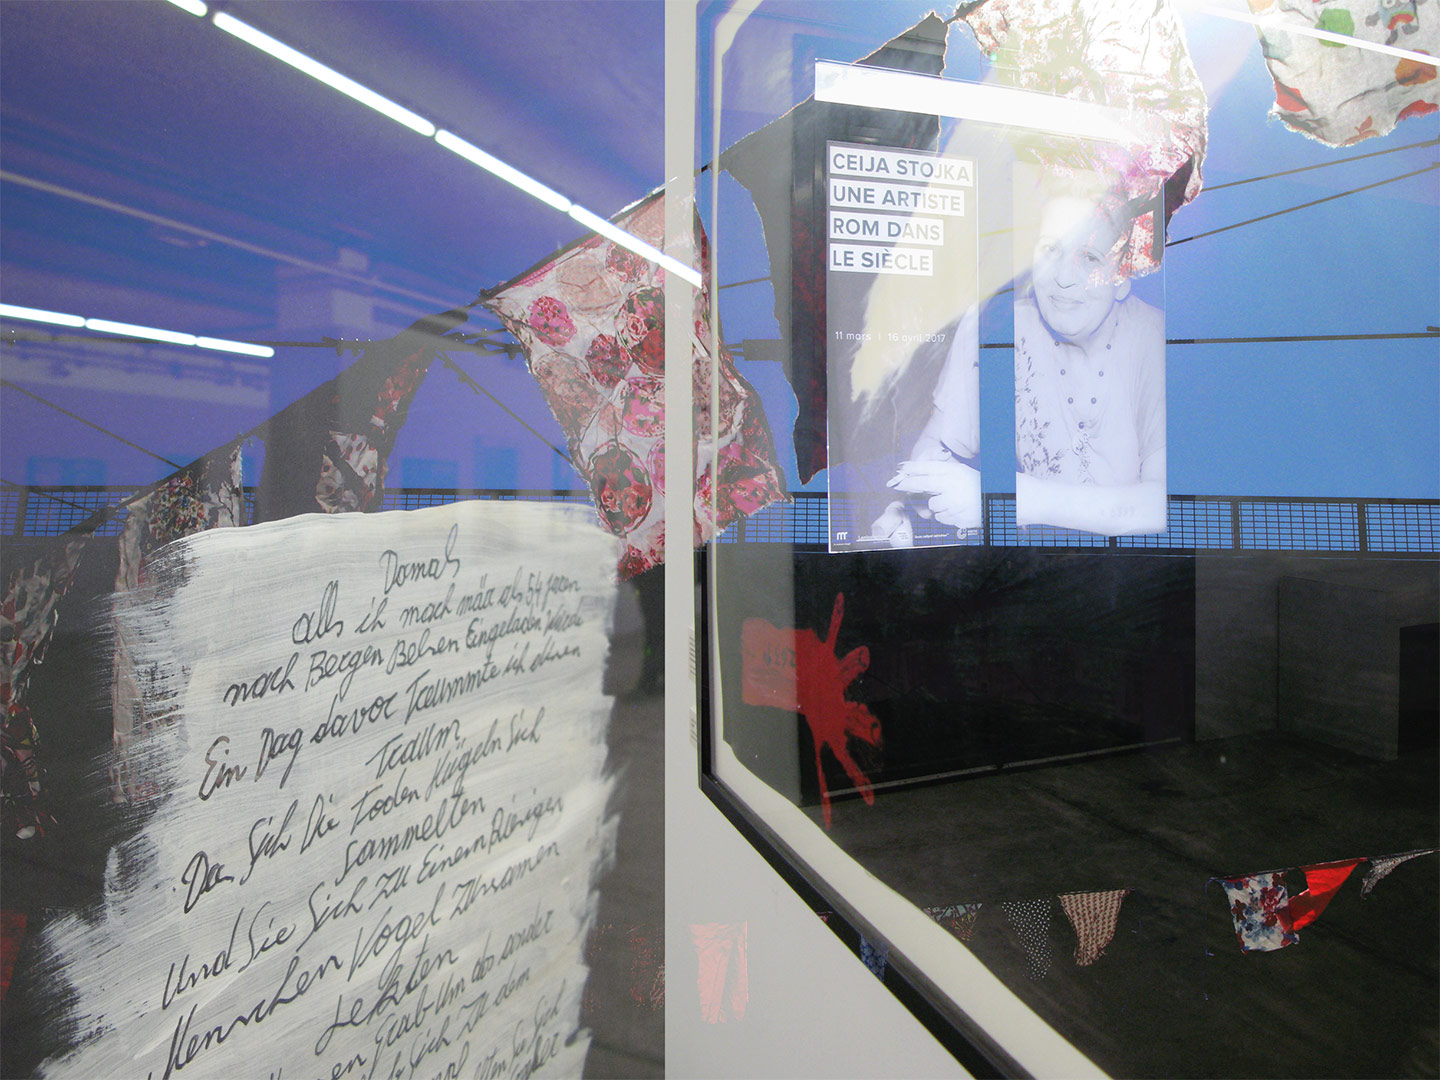 CEIJA STOJKA
UNE ARTISTE
ROM DANS
LE SIÈCLE
11 mars | 16 avril 2017
Damals
alls ich noch mär als 54 jaren
nach Bergen Belsen Eingeladen Würde
Ein Dag davor Traummte ich disen
Traum,
Das Sich Die Toden Hügeln Sich
sammelten
Und Sie Sich zu Einem Risigen
Menschen Vogel zusamen
sezten
Grab um das ander
Sich zu dem